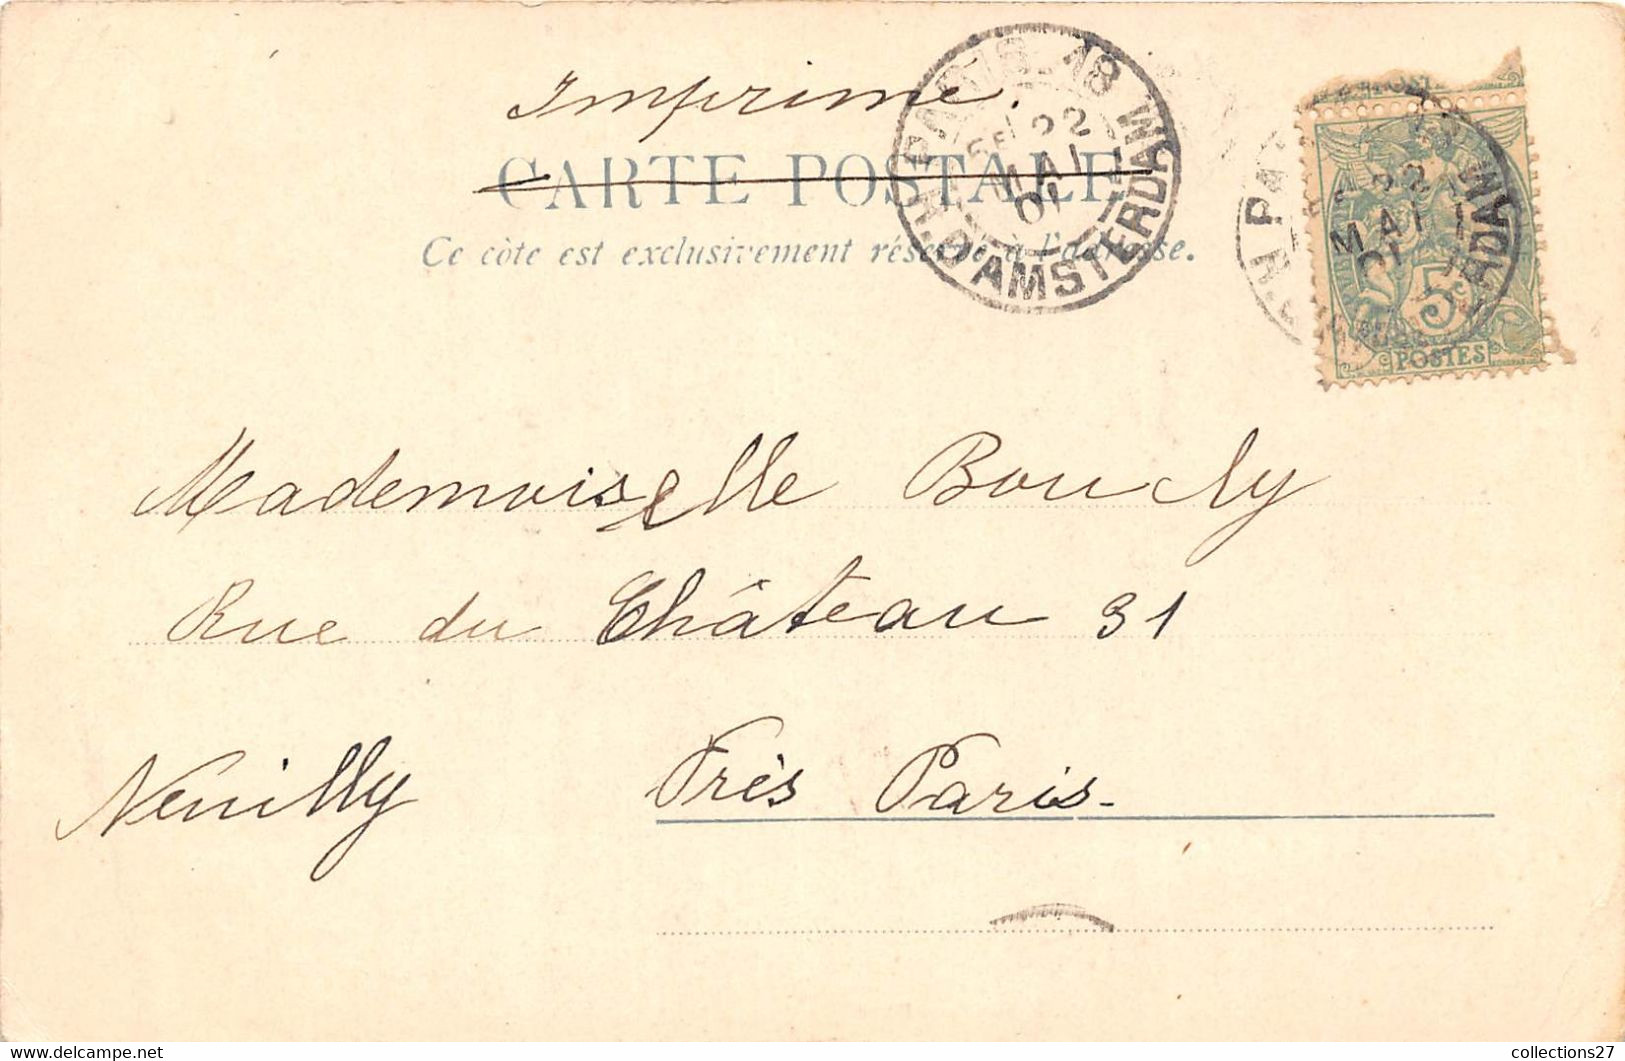 Imprimé.
CARTE POSTALE
Ce côté est exclusivement réservé à l'adresse.
PARIS 18 R. D'AMSTERDAM
22
MAI
01
22
MAI
01
5c
POSTES
Mademoiselle Boucly
Rue du Château 31
Neuilly Près Paris.
collections27